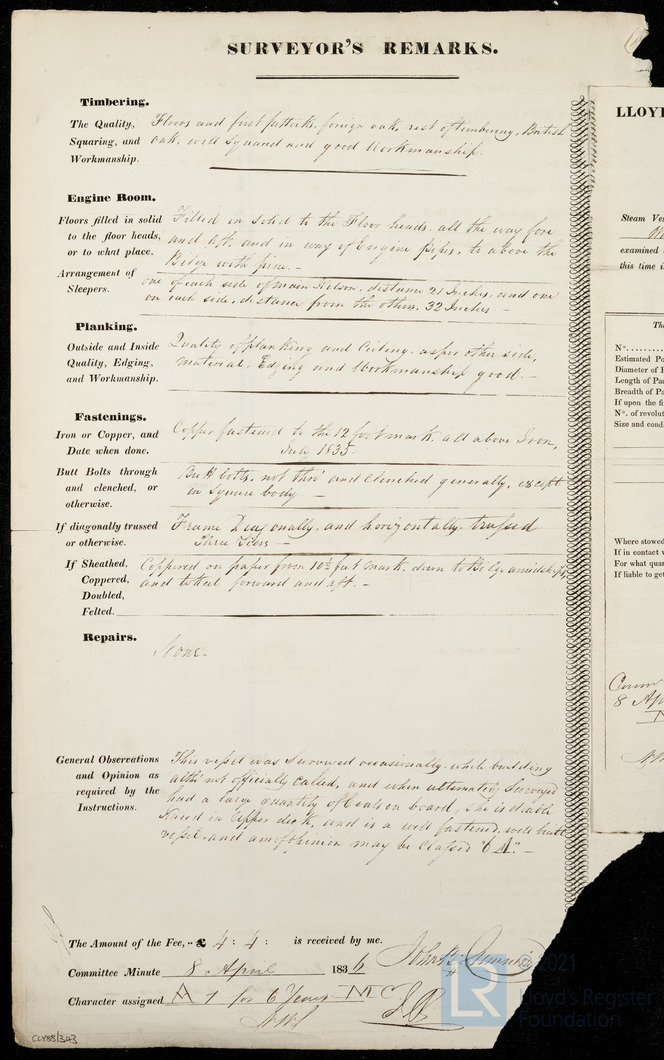 SURVEYOR'S REMARKS.
Timbering.
The Quality, Squaring, and Workmanship.
Floors and first futtocks, foreign oak, rest of timbering, British
oak, well squared and good Workmanship.
Engine Room.
Floors filled in solid to the floor heads, or to what place.
Filled in solid to the Floor heads, all the way fore
and aft, and in way of Engine pipes, to above the
Bilge with pine. -
Arrangement of Sleepers.
one of each side of main Kelson, distance 21 Inches, and one
on each side, distance from the others, 32 Inches -
Planking.
Outside and Inside Quality, Edging, and Workmanship.
Quality of planking and Ceiling, as per other side,
material, Edging and Workmanship good. -
Fastenings.
Iron or Copper, and Date when done.
Copper fastened to the 12 foot mark, all above Iron,
July 1835
Butt Bolts through and clenched, or otherwise.
Butt bolts, not thro' and Clenched generally, except
in Square body -
If diagonally trussed or otherwise.
Frame Diagonally, and horizontally trussed
Three Tiers -
If Sheathed, Coppered, Doubled, Felted.
Coppered on paper from 10½ feet mark, down to Bilge amidships,
and forward and aft. -
Repairs.
None -
General Observations and Opinion as required by the Instructions.
This vessel was Surveyed occasionally, while building
altho' not officially called, and when Surveyed
had a large quantity of Coals on board, She is
in upper deck, and is a well fastened, well built
vessel, and am of opinion may be Classed "6 A." -
The Amount of the Fee, -- £ 4 : 4 : is received by me.
Committee Minute 8 April 1836
Character assigned A 1 for 6 Years
CLY88/343
LLOY
Steam Ves
examined
this time i
Th
Nº.
Estimated Po
Diameter of
Length of Pad
Breadth of Pa
If upon the fi
Nº. of revolut
Size and cond
Where stowed
If in contact
For what quan
If liable to get
8 Ap
© 2021
LR
Lloyd's Register
Foundation